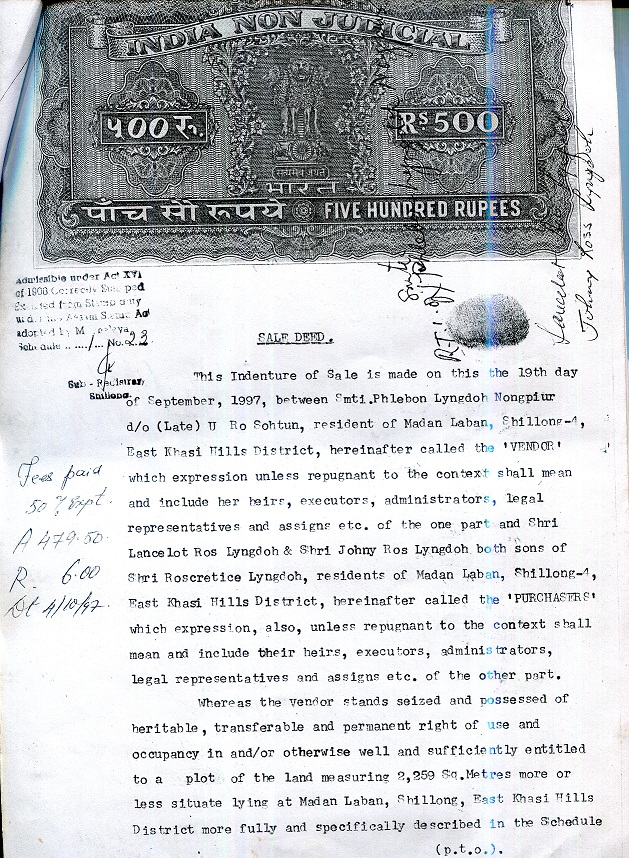 INDIA NON JUDICIAL
५०० रु.
RS 500
सत्यमेव जयते
भारत
पाँच सौ रुपये
FIVE HUNDRED RUPEES
Johny Ross Lyngdoh
Admissible under Act XVI
of 1908 Correctly Stamped
Exempted from Stamp duty
Stamp Act
adopted by
Schedule No. 23
Sub - Registrar
Shillong.
SALE DEED.
This Indenture of Sale is made on this the 19th day
of September, 1997, between Smti.Phlebon Lyngdoh Nongpiur
d/o (Late) U Ro Sohtun, resident of Madan Laban, Shillong-4,
East Khasi Hills District, hereinafter called the 'VENDOR'
which expression unless repugnant to the context shall mean
and include her heirs, executors, administrators, legal
representatives and assigns etc. of the one part and Shri
Lancelot Ros Lyngdoh & Shri Johny Ros Lyngdoh both sons of
Shri Roscretice Lyngdoh, residents of Madan Laban, Shillong-4,
East Khasi Hills District, hereinafter called the 'PURCHASERS'
which expression, also, unless repugnant to the context shall
mean and include their heirs, executors, administrators,
legal representatives and assigns etc. of the other part.
Whereas the vendor stands seized and possessed of
heritable, transferable and permanent right of use and
occupancy in and/or otherwise well and sufficiently entitled
to a plot of the land measuring 2,259 Sq.Metres more or
less situate lying at Madan Laban, Shillong, East Khasi Hills
District more fully and specifically described in the Schedule
(p.t.o.).
Fees paid
50 % Expt.
A 479.50
R. 6.00
Dt 4/10/97